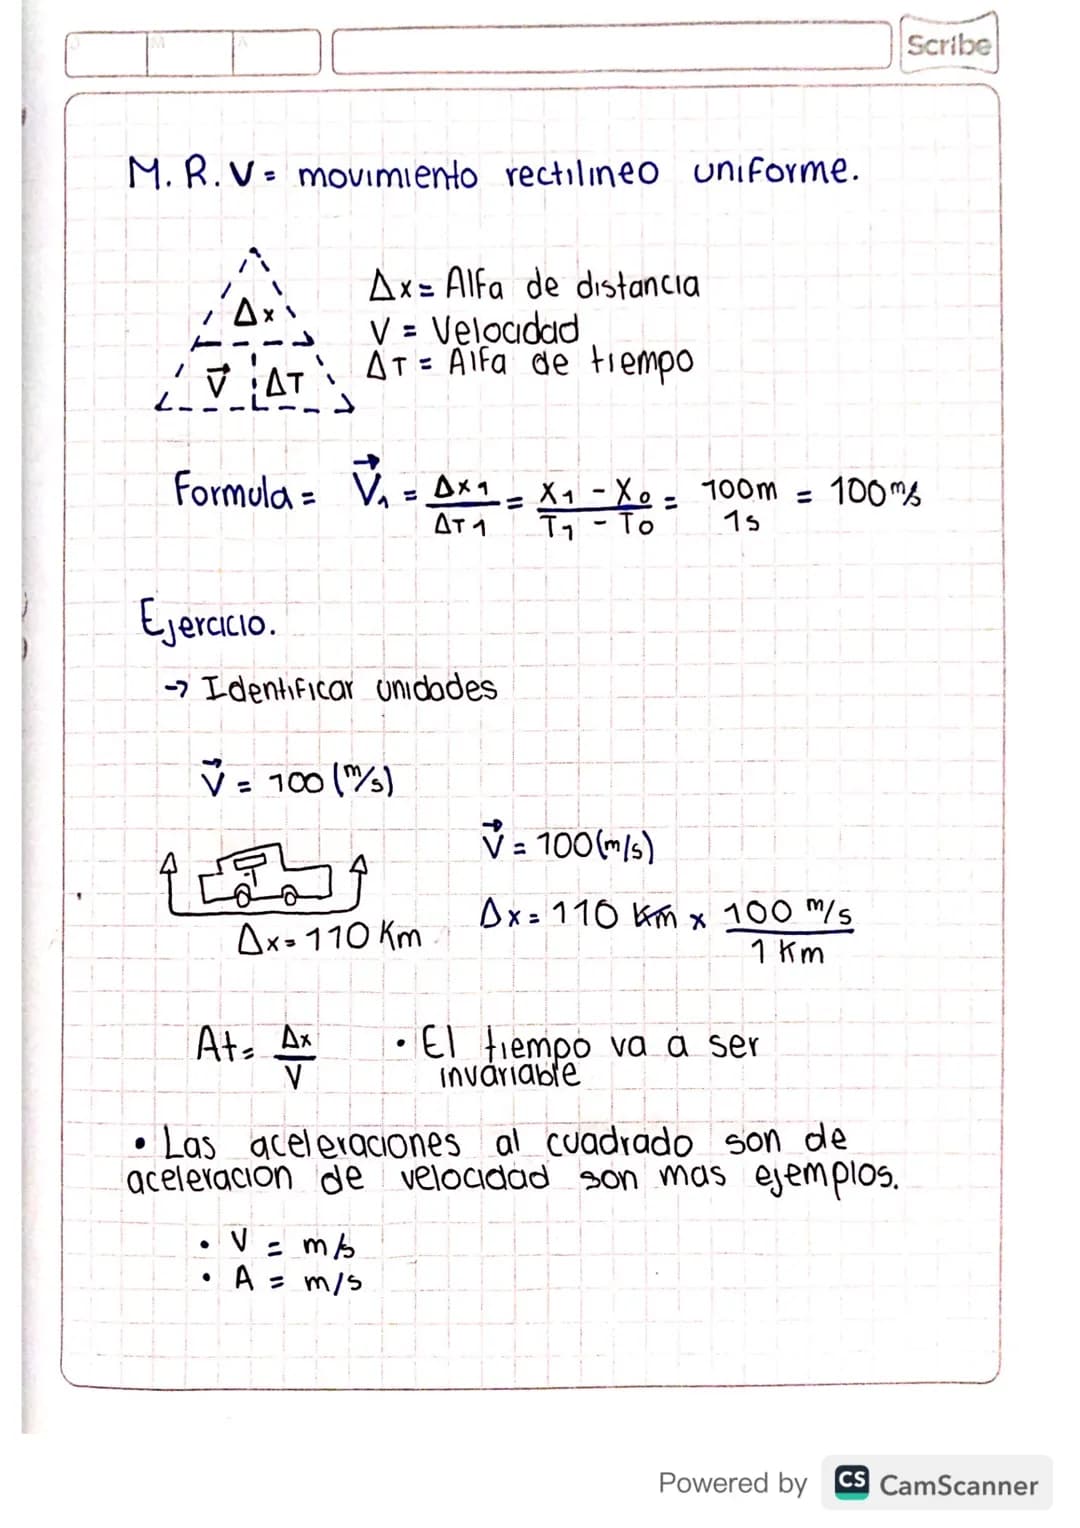 J M A
Scribe
M. R. V = movimiento rectilineo uniforme.
Δx
V⃗ ΔT
Δx = Alfa de distancia
V = Velocidad
ΔT = Alfa de tiempo
Formula = V⃗₁ = Δx1/ΔT1 = X1 - X0/T1 - T0 = 100m/1s = 100 m/s
Ejercicio.
→ Identificar unidades
V⃗ = 100 (m/s)
Δx = 110 Km
V⃗ = 100(m/s)
Δx = 110 Km x 100 m/s / 1 Km
At = Δx/V
• El tiempo va a ser
invariable
• Las aceleraciones al cuadrado son de
aceleracion de velocidad son mas ejemplos.
• V = m/s
• A = m/s
Powered by CS CamScanner